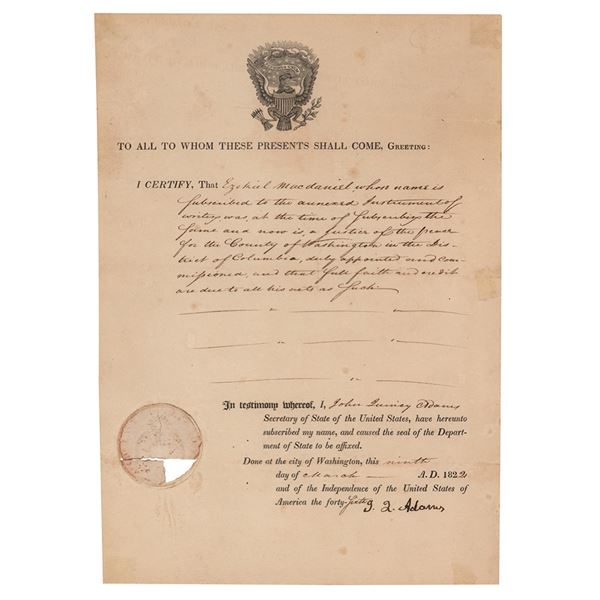 TO ALL TO WHOM THESE PRESENTS SHALL COME, GREETING:
I CERTIFY, That Ezekiel Macdaniel, whose name is
subscribed to the annexed Instrument of
writing was, at the time of subscribing the
same and now is, a Justice of the peace
for the County of Washington in the Dis-
trict of Columbia, duly appointed and com-
missioned, and that full faith and credit
are due to all his acts as such.
In testimony whereof, I, John Quincy Adams
Secretary of State of the United States, have hereunto
subscribed my name, and caused the seal of the Depart-
ment of State to be affixed.
Done at the city of Washington, this ninth
day of March A.D. 1822
and of the Independence of the United States of
America the forty-sixth
J. Q. Adams